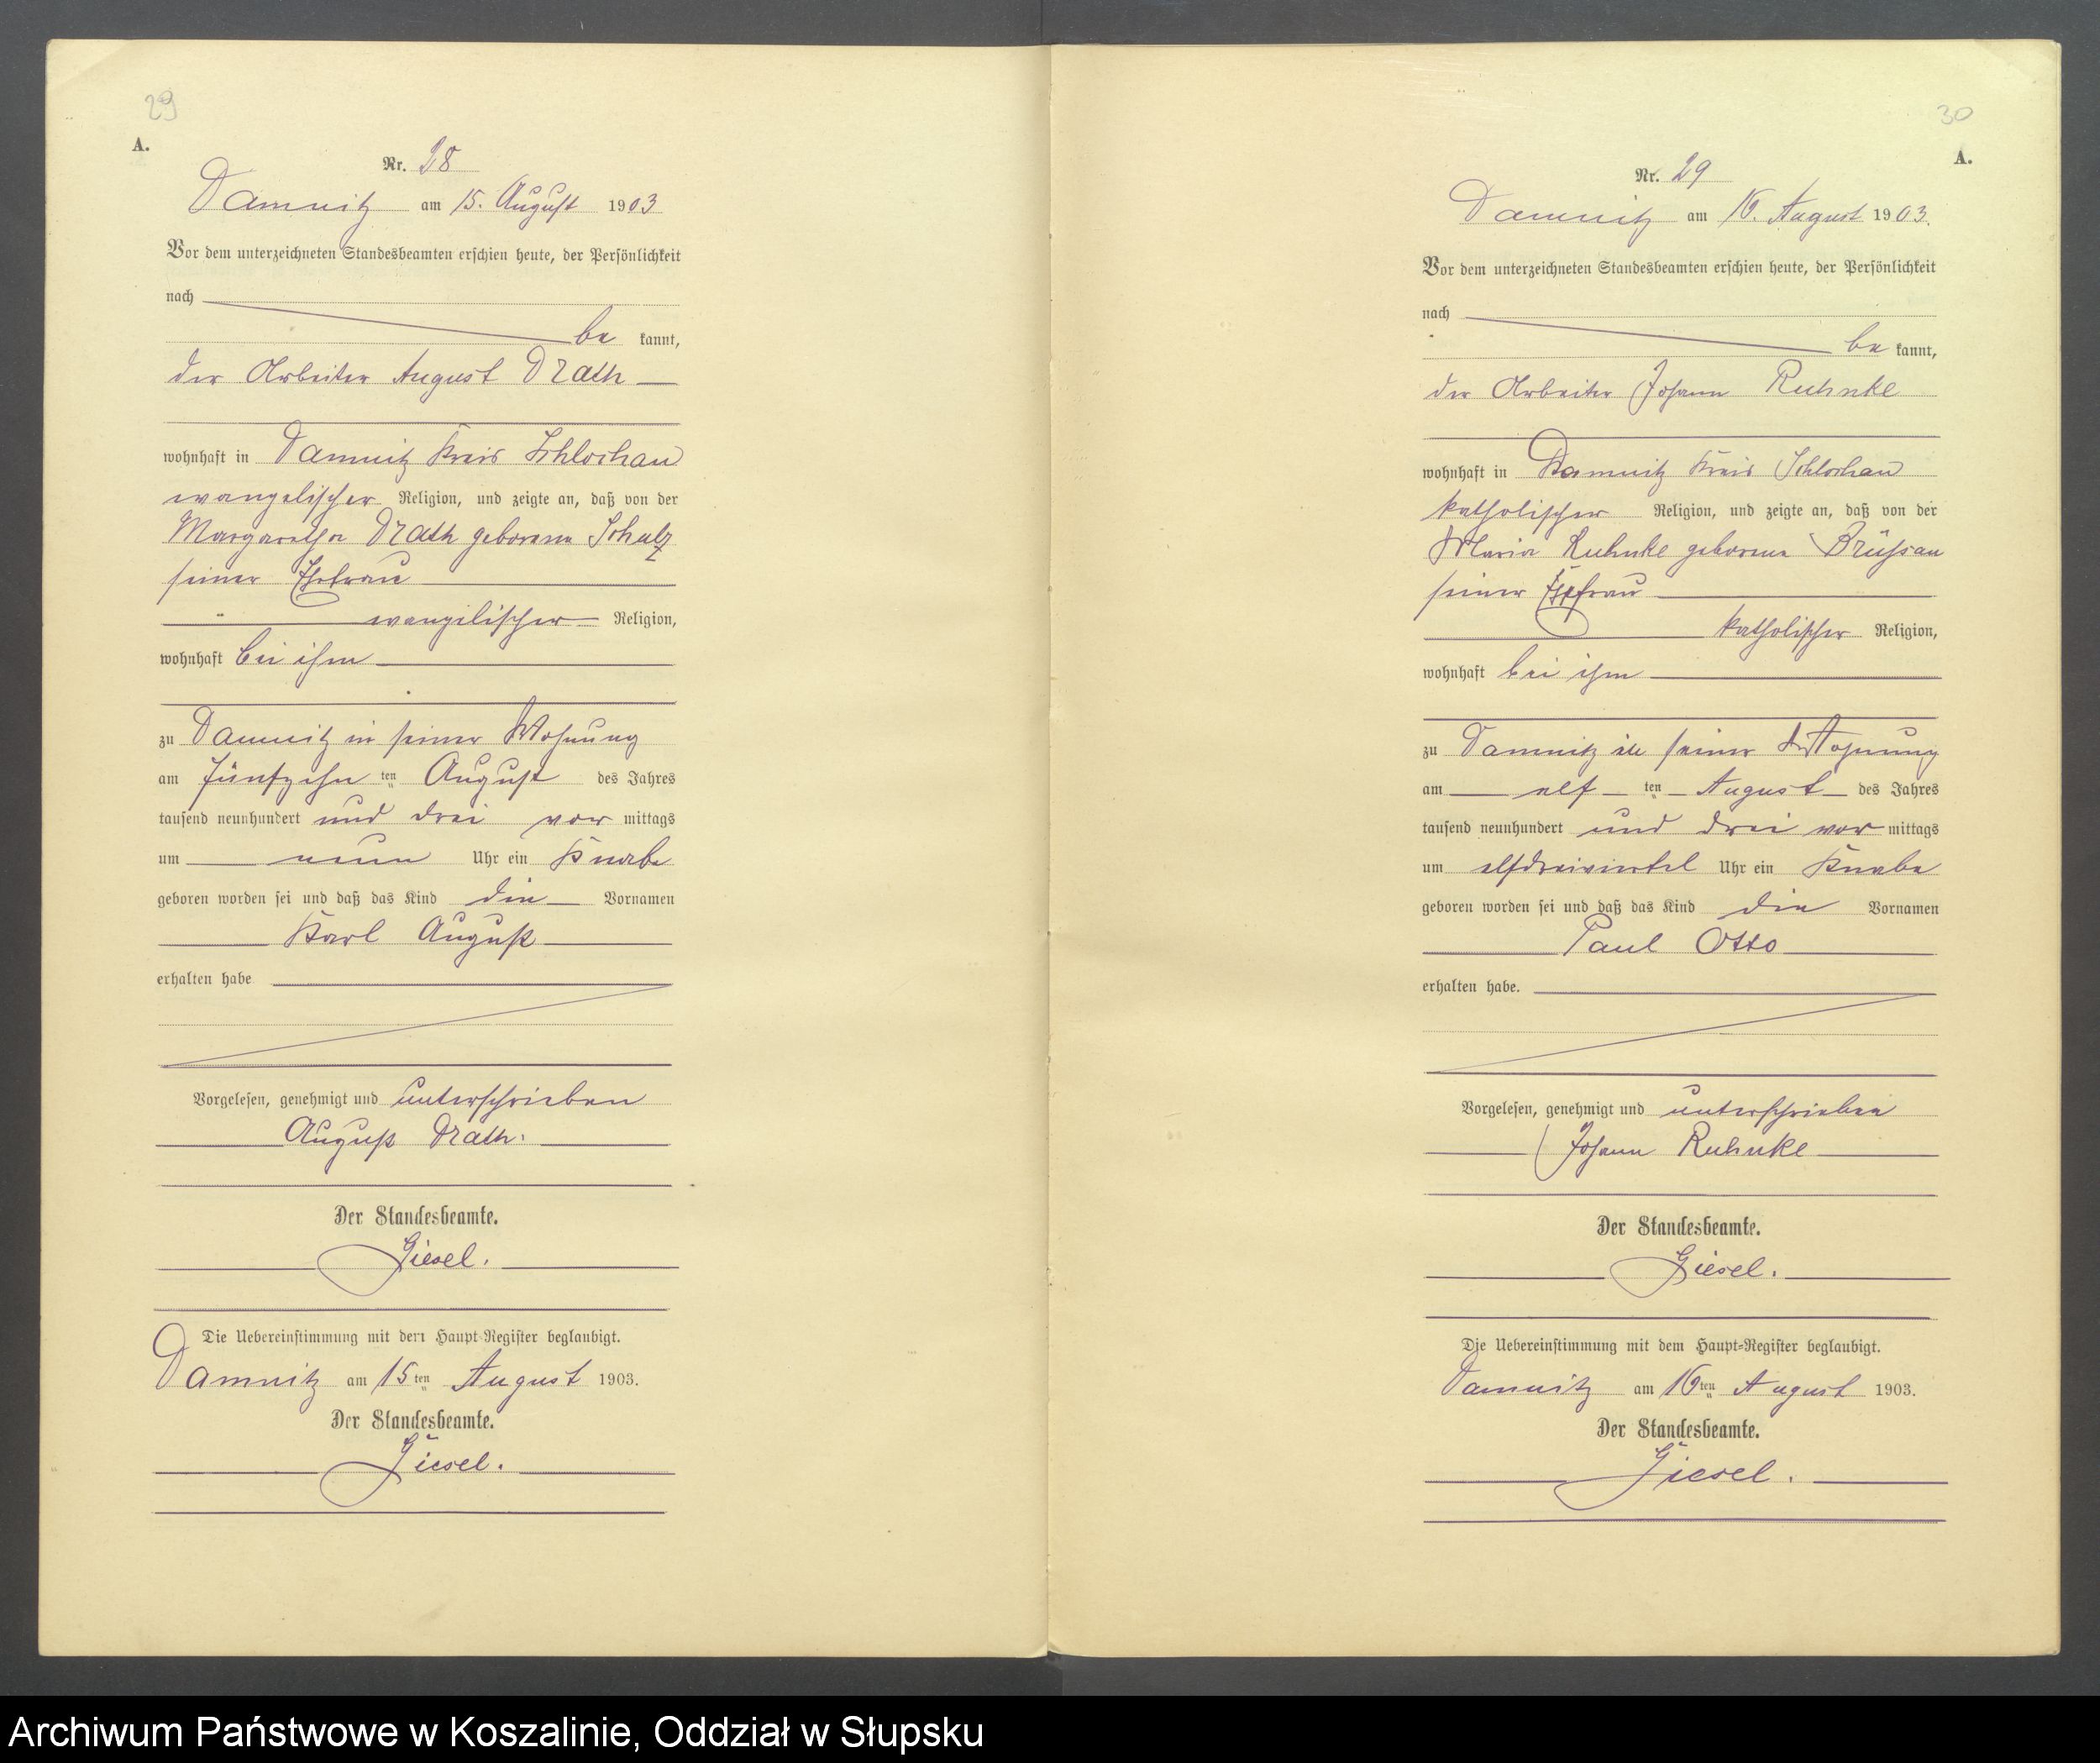 29
A.
Nr. 28
Damnitz am 15. August 1903
Vor dem unterzeichneten Standesbeamten erschien heute, der Persönlichkeit
nach
be kannt,
der Arbeiter August Drath
wohnhaft in Damnitz Kreis Schlochau
evangelischer Religion, und zeigte an, daß von der
Margarethe Drath geborene Schulz
seiner Ehefrau
evangelischer Religion,
wohnhaft bei ihm
zu Damnitz in seiner Wohnung
am fünfzehn ten August des Jahres
tausend neunhundert und drei vor mittags
um neun Uhr ein Knabe
geboren worden sei und daß das Kind die Vornamen
Karl August
erhalten habe
Vorgelesen, genehmigt und unterschrieben
August Drath.
Der Standesbeamte.
Giesel.
Die Uebereinstimmung mit dem Haupt-Register beglaubigt.
Damnitz am 15ten August 1903.
Der Standesbeamte.
Giesel.
30
A.
Nr. 29
Damnitz am 16. August 1903.
Vor dem unterzeichneten Standesbeamten erschien heute, der Persönlichkeit
nach
be kannt,
der Arbeiter Johann Ruhnke
wohnhaft in Damnitz Kreis Schlochau
katholischer Religion, und zeigte an, daß von der
Maria Ruhnke geborene
seiner Ehefrau
katholischer Religion,
wohnhaft bei ihm
zu Damnitz in seiner Wohnung
am elf ten August des Jahres
tausend neunhundert und drei vor mittags
um elfdreiviertel Uhr ein Knabe
geboren worden sei und daß das Kind die Vornamen
Paul Otto
erhalten habe.
Vorgelesen, genehmigt und unterschrieben
Johann Ruhnke
Der Standesbeamte.
Giesel.
Die Uebereinstimmung mit dem Haupt-Register beglaubigt.
Damnitz am 16ten August 1903.
Der Standesbeamte.
Giesel.
Archiwum Państwowe w Koszalinie, Oddział w Słupsku